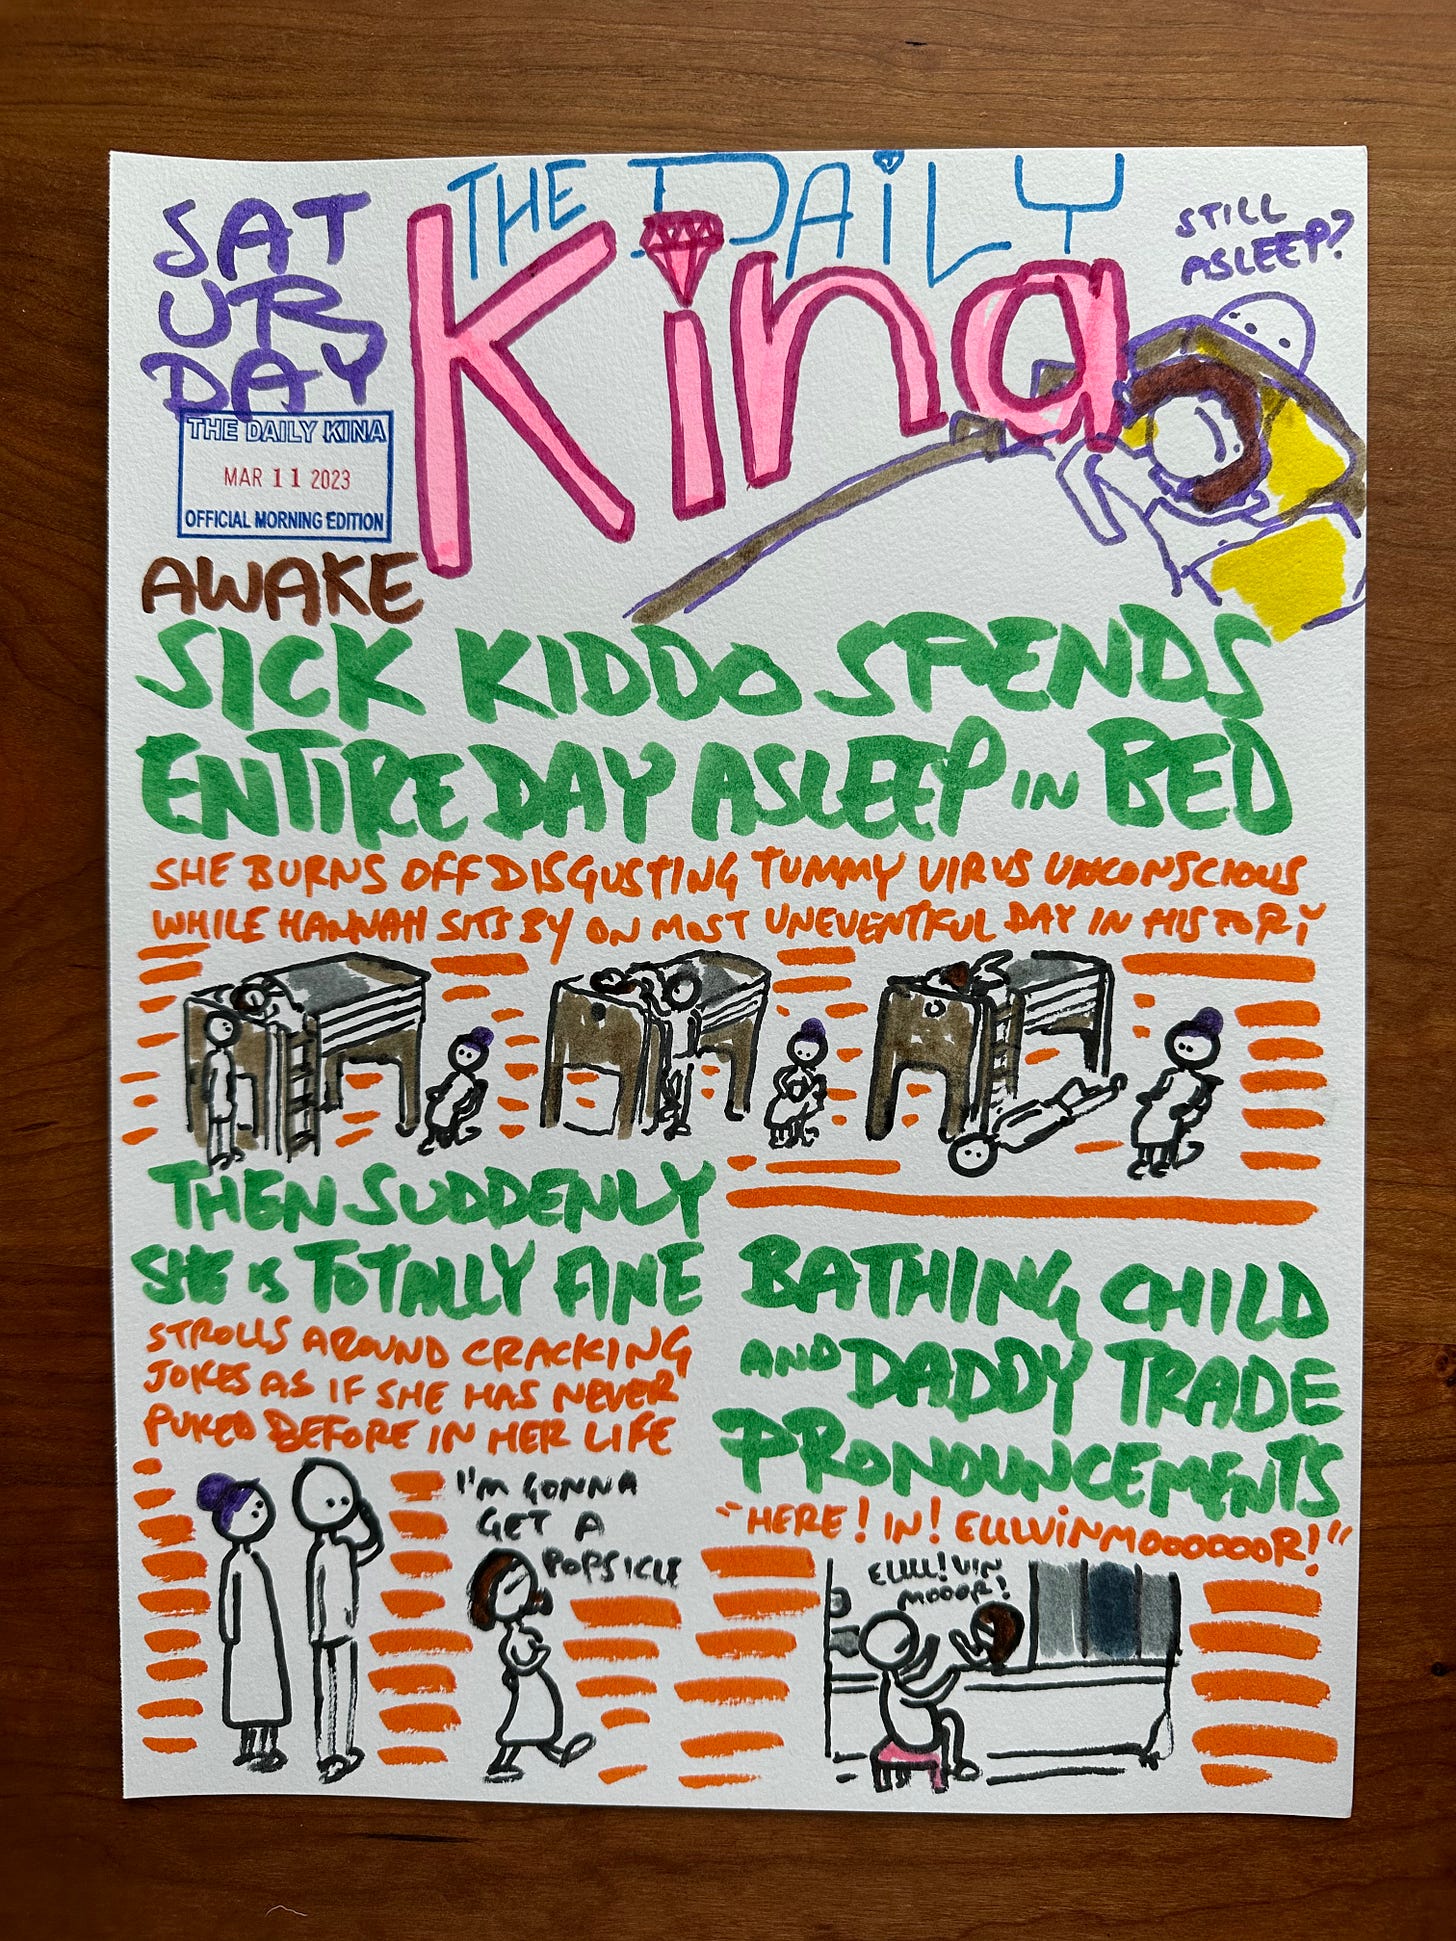 SAT
UR
DAY
THE DAILY
Kina
STILL
ASLEEP?
THE DAILY KINA
MAR 11 2023
OFFICIAL MORNING EDITION
AWAKE
SICK KIDDO SPENDS
ENTIRE DAY ASLEEP IN BED
SHE BURNS OFF DISGUSTING TUMMY VIRUS UNCONSCIOUS
WHILE HANNAH SITS BY ON MOST UNEVENTFUL DAY IN HISTORY
THEN SUDDENLY
SHE IS TOTALLY FINE
STROLLS AROUND CRACKING
JOKES AS IF SHE HAS NEVER
PUKED BEFORE IN HER LIFE
I'M GONNA
GET A
POPSICLE
BATHING CHILD
AND DADDY TRADE
PRONOUNCEMENTS
"HERE! IN! ELLLVINMOOOOOOR!"
ELLL!VIN
MOOOR!